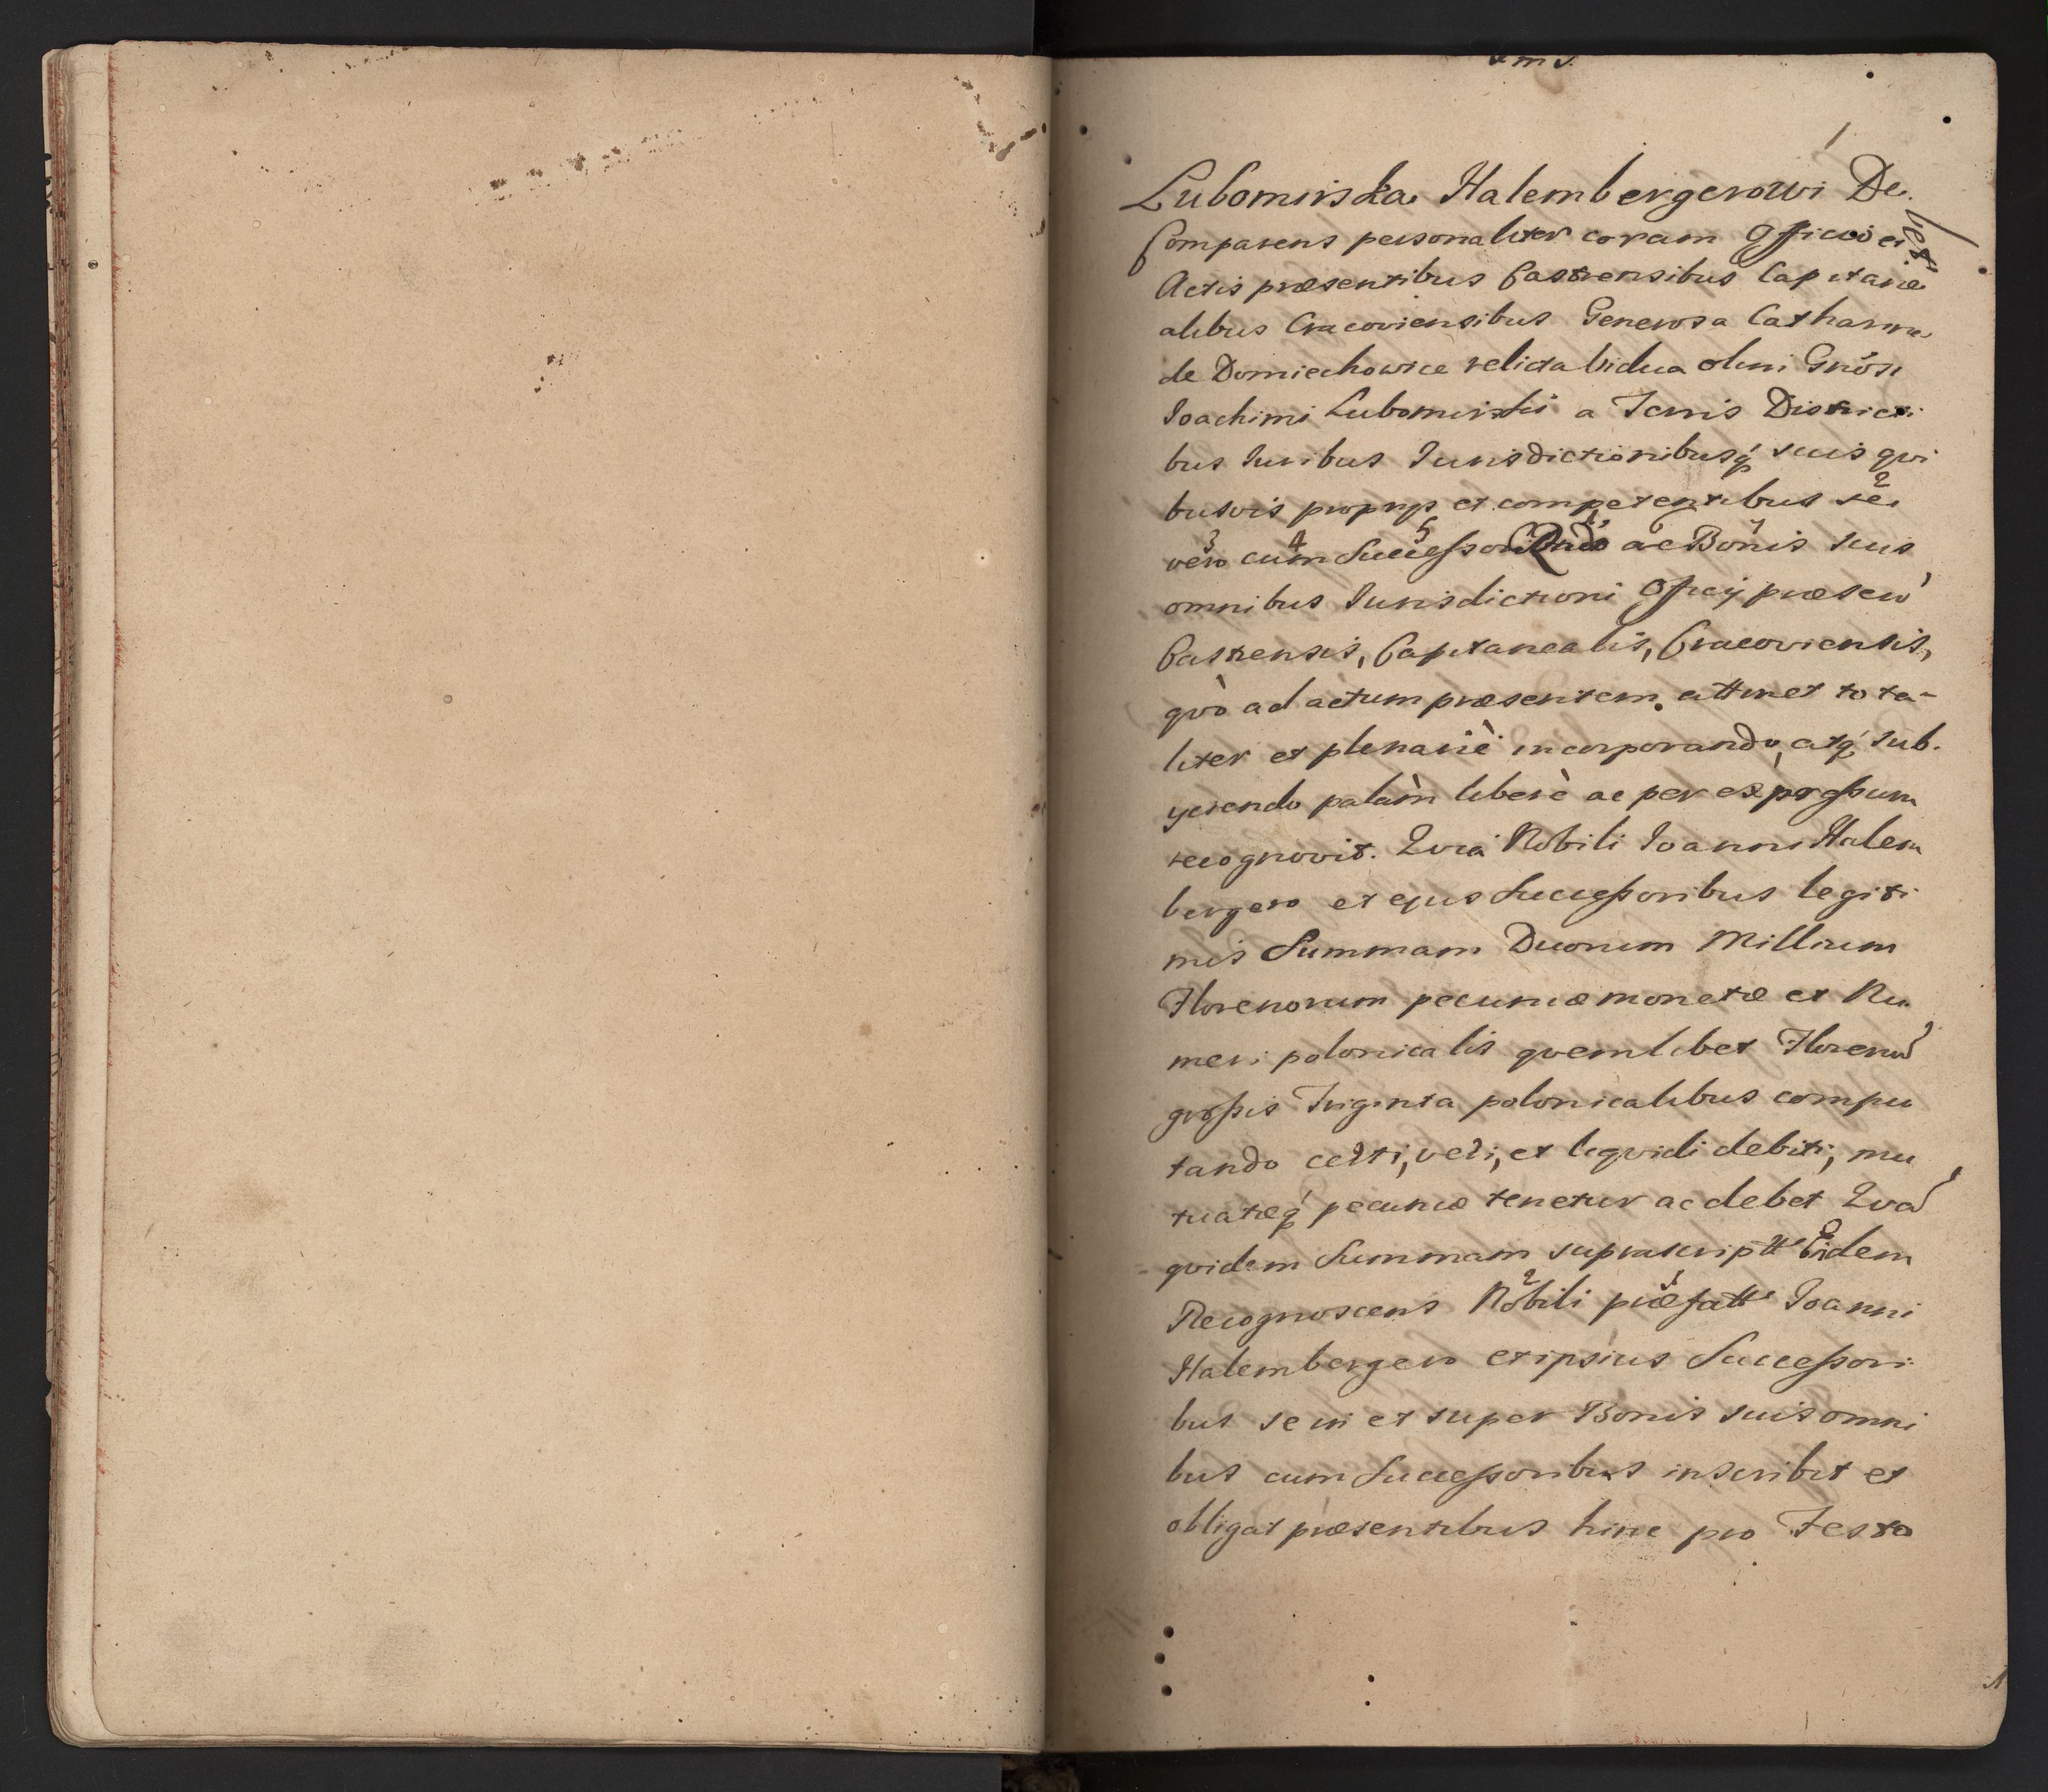 1
Lubomirska Halembergerowi De.
bet
Comparens personaliter coram Officio et
Actis præsentibus Castrensibus Capitanæ
alibus Cracoviensibus Generosa Catharina
de Domiechowice relicta Vidua olim Gnõsi
Ioachimi Lubomirski a Terris Districti
bus Iuribus Iurisdictionibusq́ suis qvi
busvis proprijs et competentibus se
vero cum Successoribus ac Bonis suis
omnibus Iurisdictioni Officij præsen
Castrensis, Capitanealis, Cracoviensis,
qvò ad actum præsentem attinet tota-
liter et plenariè incorporando, atq́ sub-
yciendo palàm liberè ac per expressum
recognovit. Qvia Nobili Ioanni Halem
bergero et ejus Successoribus legiti
mis Summam Duorum Millium
Florenorum pecuniæ monetæ et Nu
meri polonicalis qvemlibet Florenu
grossis Triginta polonicalibus compu
tando certi, veri, et liqvidi debiti, mu
tuatæq́ pecuniæ tenetur ac debet Qva
qvidem Summam suprascriptt Eidem
Recognoscens Nobili præfatt Ioanni
Halembergero et ipsius Successori
bus se in et super Bonis suis omni
bus cum Successoribus inscribit et
obligat præsentibus hinc pro Festo